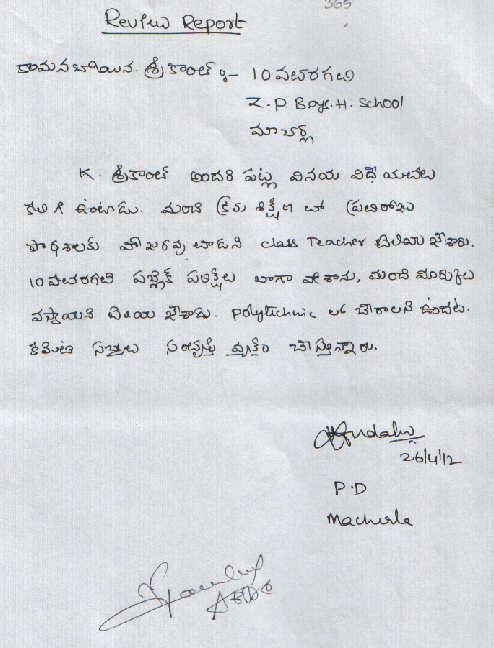 365
Review Report
కామనబోయిన శ్రీకాంత్ :- 10 వతరగతి
Z.P Boys. H. School
మాచర్ల
K. శ్రీకాంత్ అందరి పట్ల వినయ విధేయతలు
కలిగి ఉంటాడు. మంచి క్రమ శిక్షణ తో ప్రతిరోజు
పాఠశాలకు హాజరవు తాడని class Teacher తెలియజేశారు.
10 వతరగతి పబ్లిక్ పరీక్షలు బాగా వ్రాశాను, మంచి మార్కులు
వస్తాయని తెలియ జేశాడు. Polytechnic లో చేరాలని ఉందట.
కమిటీ సభ్యులు సంతృప్తి వ్యక్తం చేస్తున్నారు.
26/4/12
P.D
Macherla